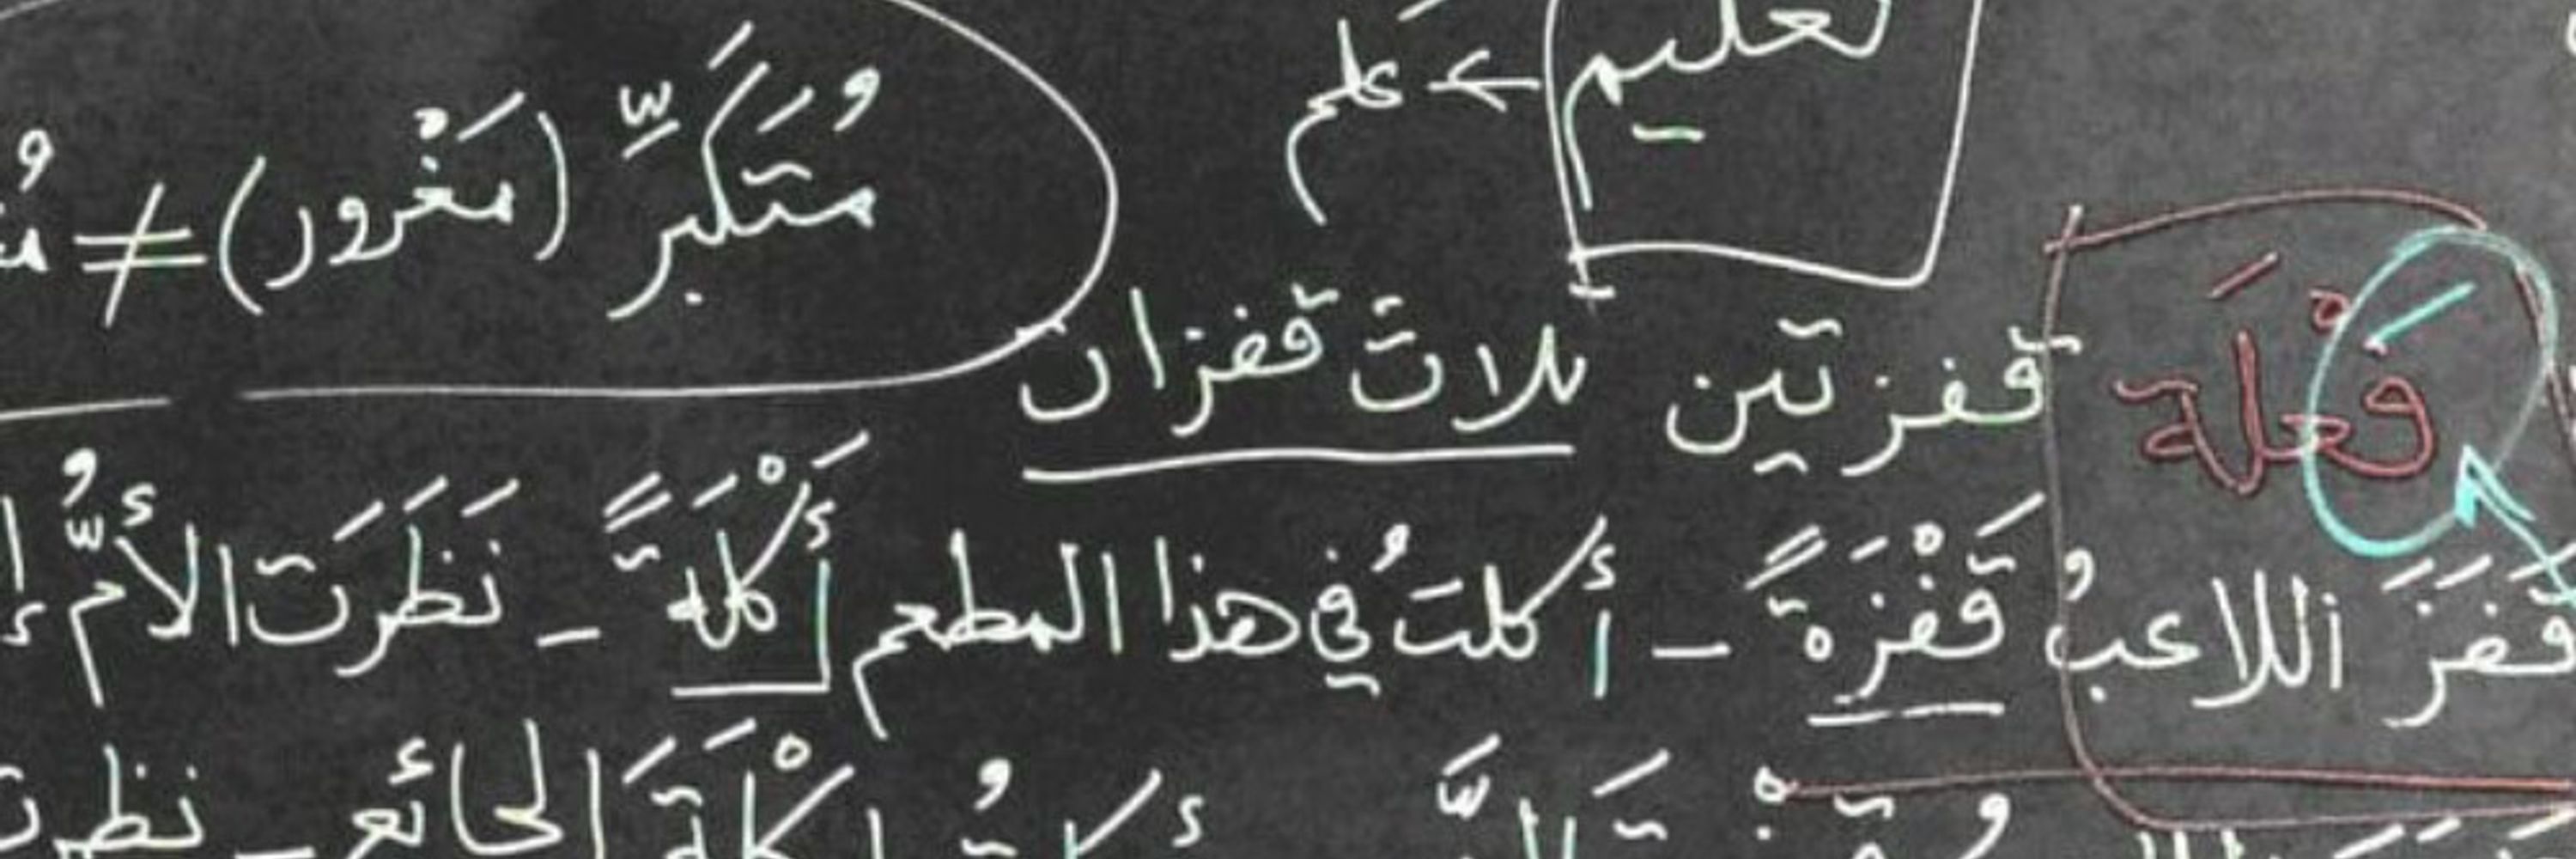 تعليم ← علم
مُتَكَبِّر (مَغْرور) ≠
فَعْلَة
قفزتين ثلاث قفزات
قَفَزَ اللاعبُ قَفْزَةً – أكلتُ في هذا المطعم أَكْلَةً – نَظَرَت الأمُّ
أكلتُ أَكْلَةَ الجائع – نظرت